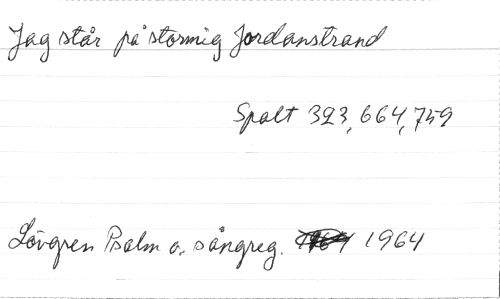 Jag står på stormig Jordanstrand
Spalt 323, 664, 759
Lövgren Psalm o. sångreg. 1964